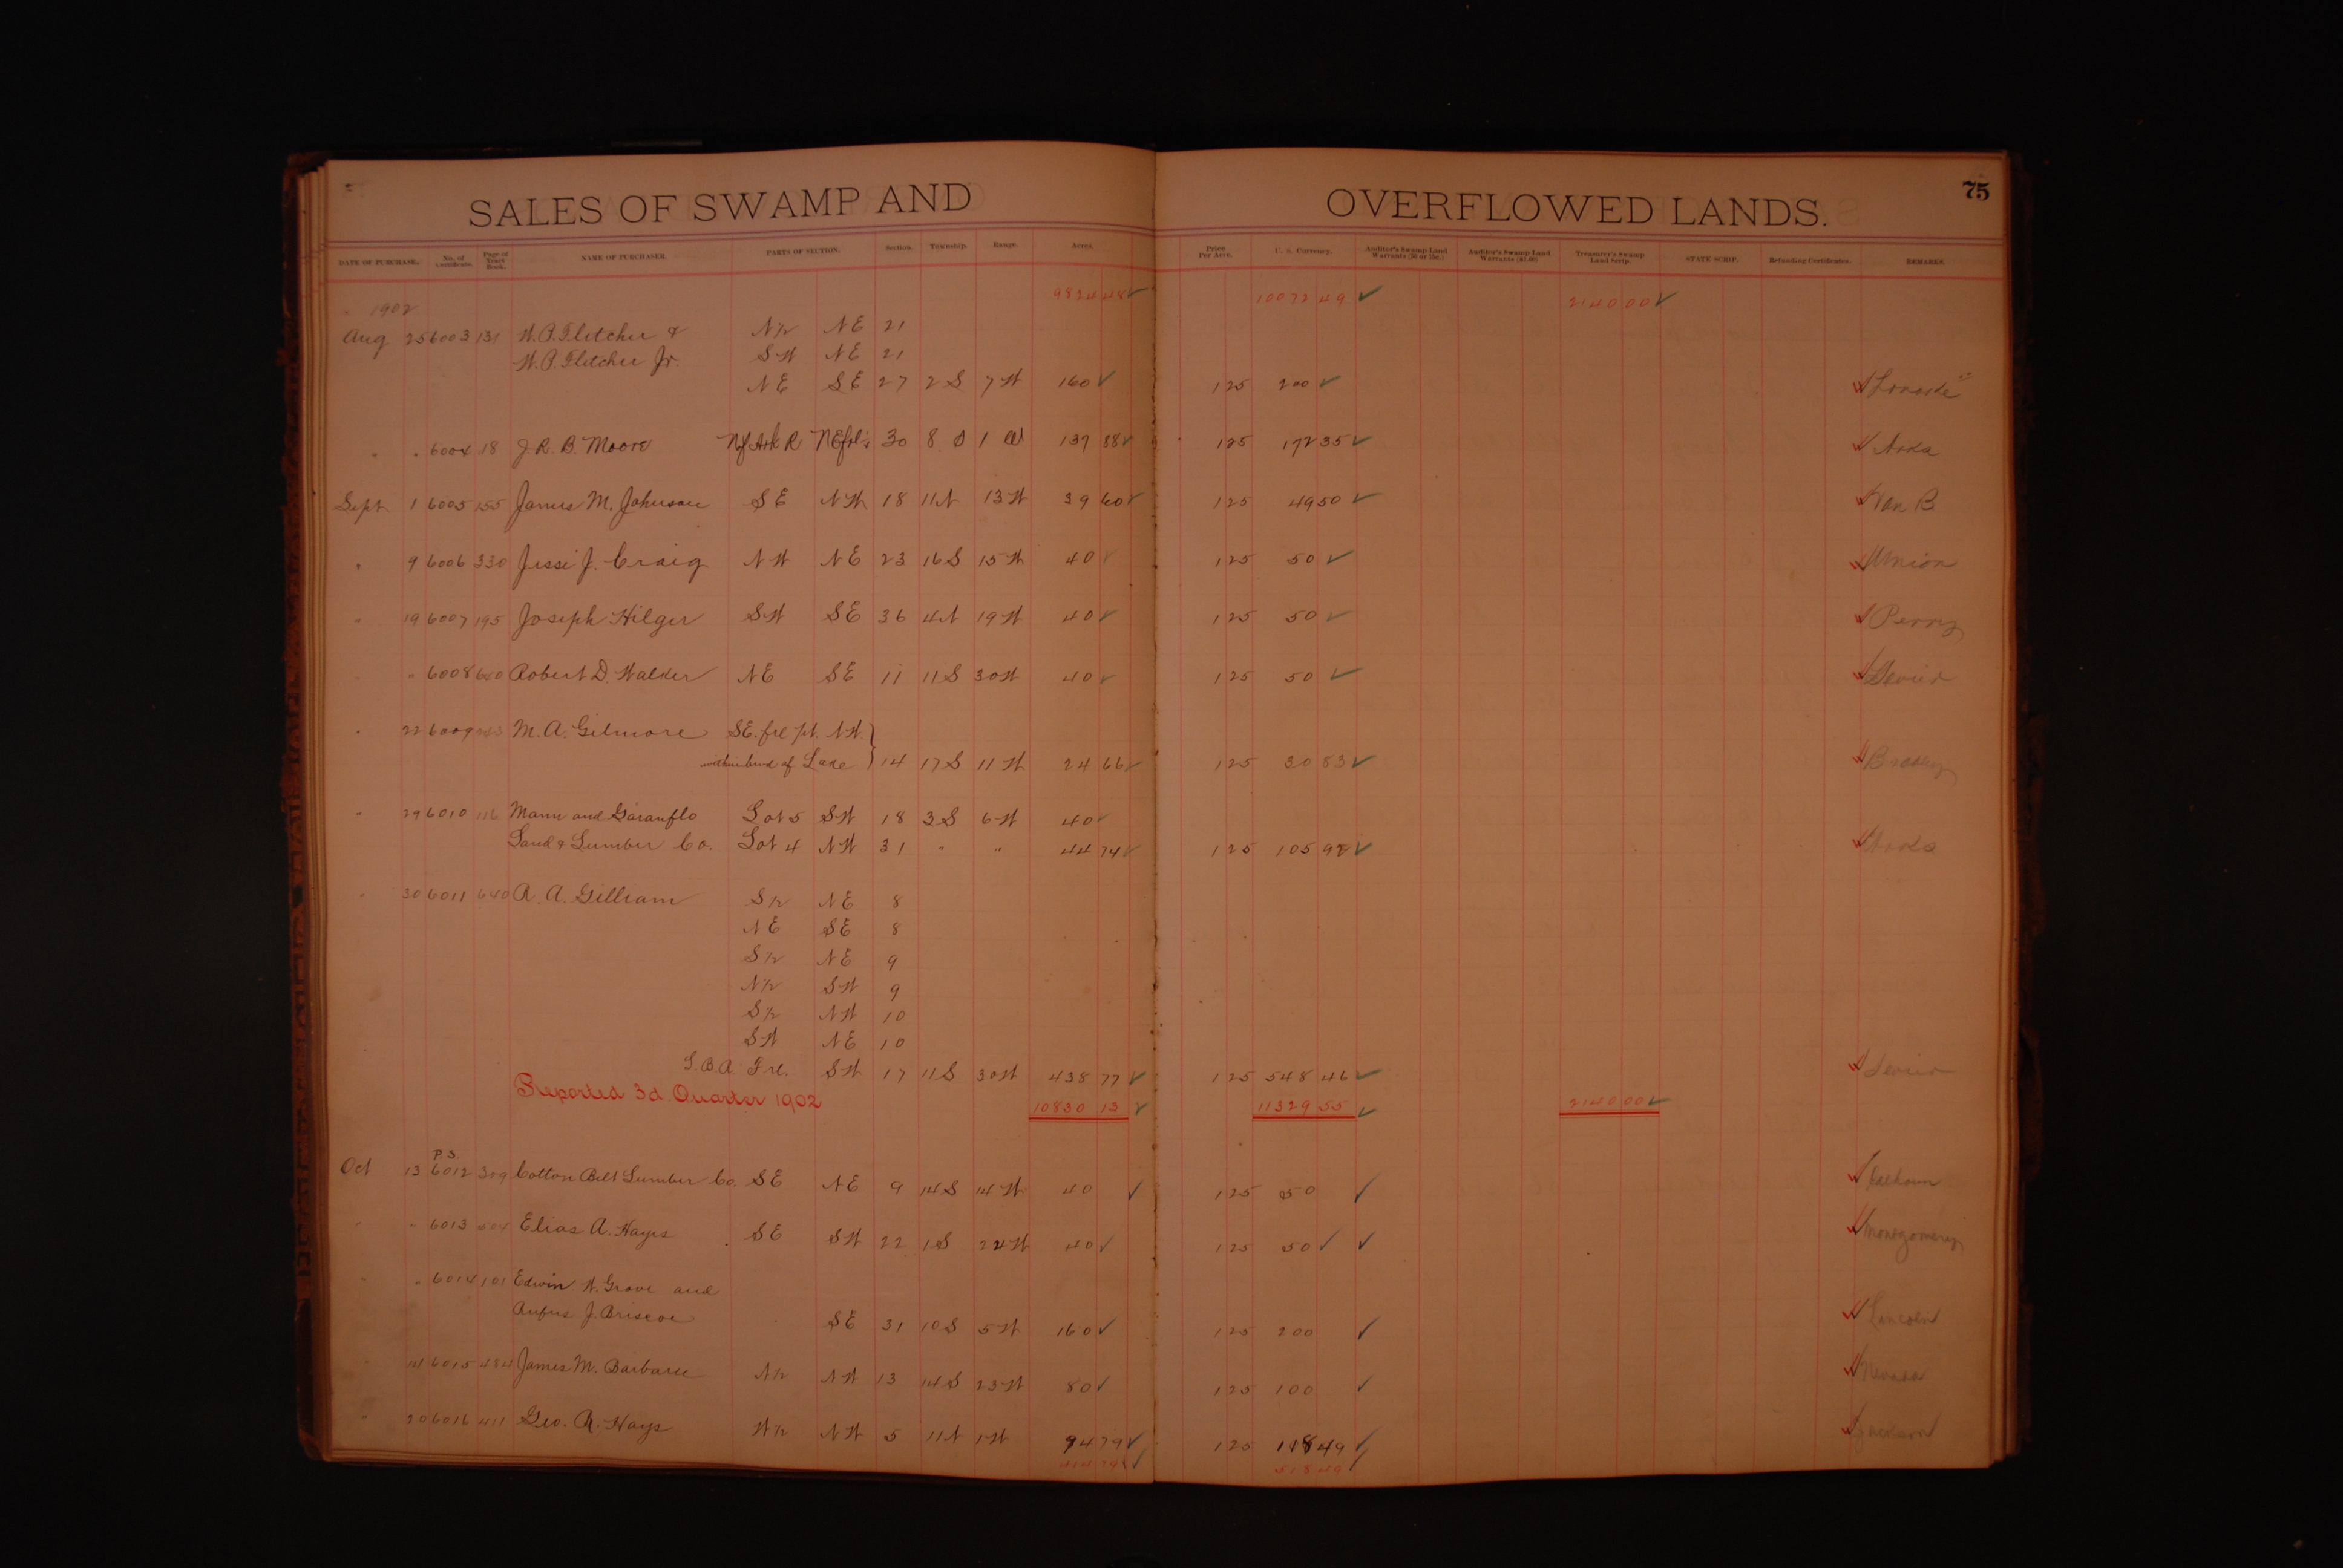 SALES OF SWAMP AND OVERFLOWED LANDS. 75
DATE OF PURCHASE. No. of Certificate. Page of Tract Book. NAME OF PURCHASER. PARTS OF SECTION. Section. Township. Range. Acres. Price Per Acre. U. S. Currency. Auditor's Swamp Land Warrants Auditor's Swamp Land Warrants Treasurer's Swamp Land Scrip. STATE SCRIP. Refunding Certificates. REMARKS.
1902 9824 48 10072 49 2140 00
Aug 25 6003 131 W.P. Fletcher & N/2 NE 21
W.P. Fletcher Jr. SW NE 21
NE SE 27 2S 7W 160 125 200 Lonoke
" " 6004 18 J.R.B. Moore Ark R NEfrl 30 8 S 1 W 137 88 125 172 35 Arka
Sept 1 6005 155 James M. Johnson SE NW 18 11N 13W 39 60 125 49 50 Van B
" 9 6006 330 Jessi J. Craig NW NE 23 16S 15W 40 125 50 Union
" 19 6007 195 Joseph Hilger SW SE 36 4N 19W 40 125 50 Perry
" " 6008 640 Robert D. Walker NE SE 11 11S 30W 40 125 50 Sevier
" 22 6009 M.A. Gilmore SE. frl pt. NW
of Lake 14 17S 11W 24 66 125 30 83 Bradley
" 29 6010 116 Mann and Garanflo Lot 5 SW 18 3S 6W 40
Land & Lumber Co. Lot 4 NW 31 " " 44 74 125 105 92 Arka
" 30 6011 640 R.A. Gilliam S/2 NE 8
NE SE 8
S/2 NE 9
N/2 SW 9
S/2 NW 10
SW NE 10
Frl. SW 17 11S 30W 438 77 125 548 46 Sevier
Reported 3d. Quarter 1902 10830 13 11329 55 2140 00
P.S.
Oct 13 6012 309 Cotton Belt Lumber Co. SE NE 9 14S 14W 40 125 50 Calhoun
" " 6013 504 Elias A. Hays SE SW 22 1S 24W 40 125 50 Montgomery
" " 6014 101 Edwin W. Grove and
Rufus J. Briscoe SE 31 10S 5W 160 125 200 Lincoln
" 14 6015 484 James M. Barbaree N/2 NW 13 14S 23W 80 125 100 Nevada
" 20 6016 411 Geo. R. Hays W/2 NW 5 11N 1W 94 79 125 118 49 Jackson
414 79 518 49